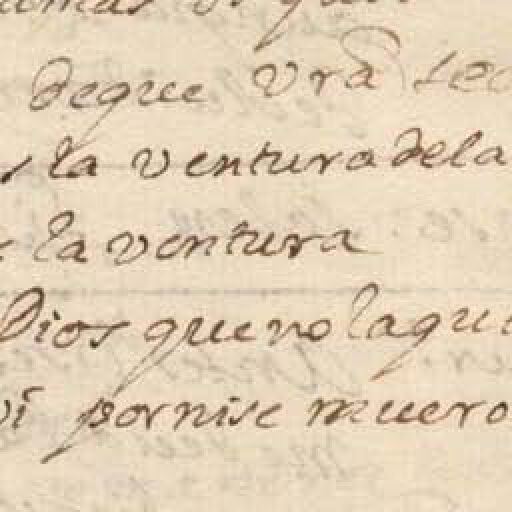 deque vrã
la ventura dela
la ventura
Dios que no laqui
vi por nise muero